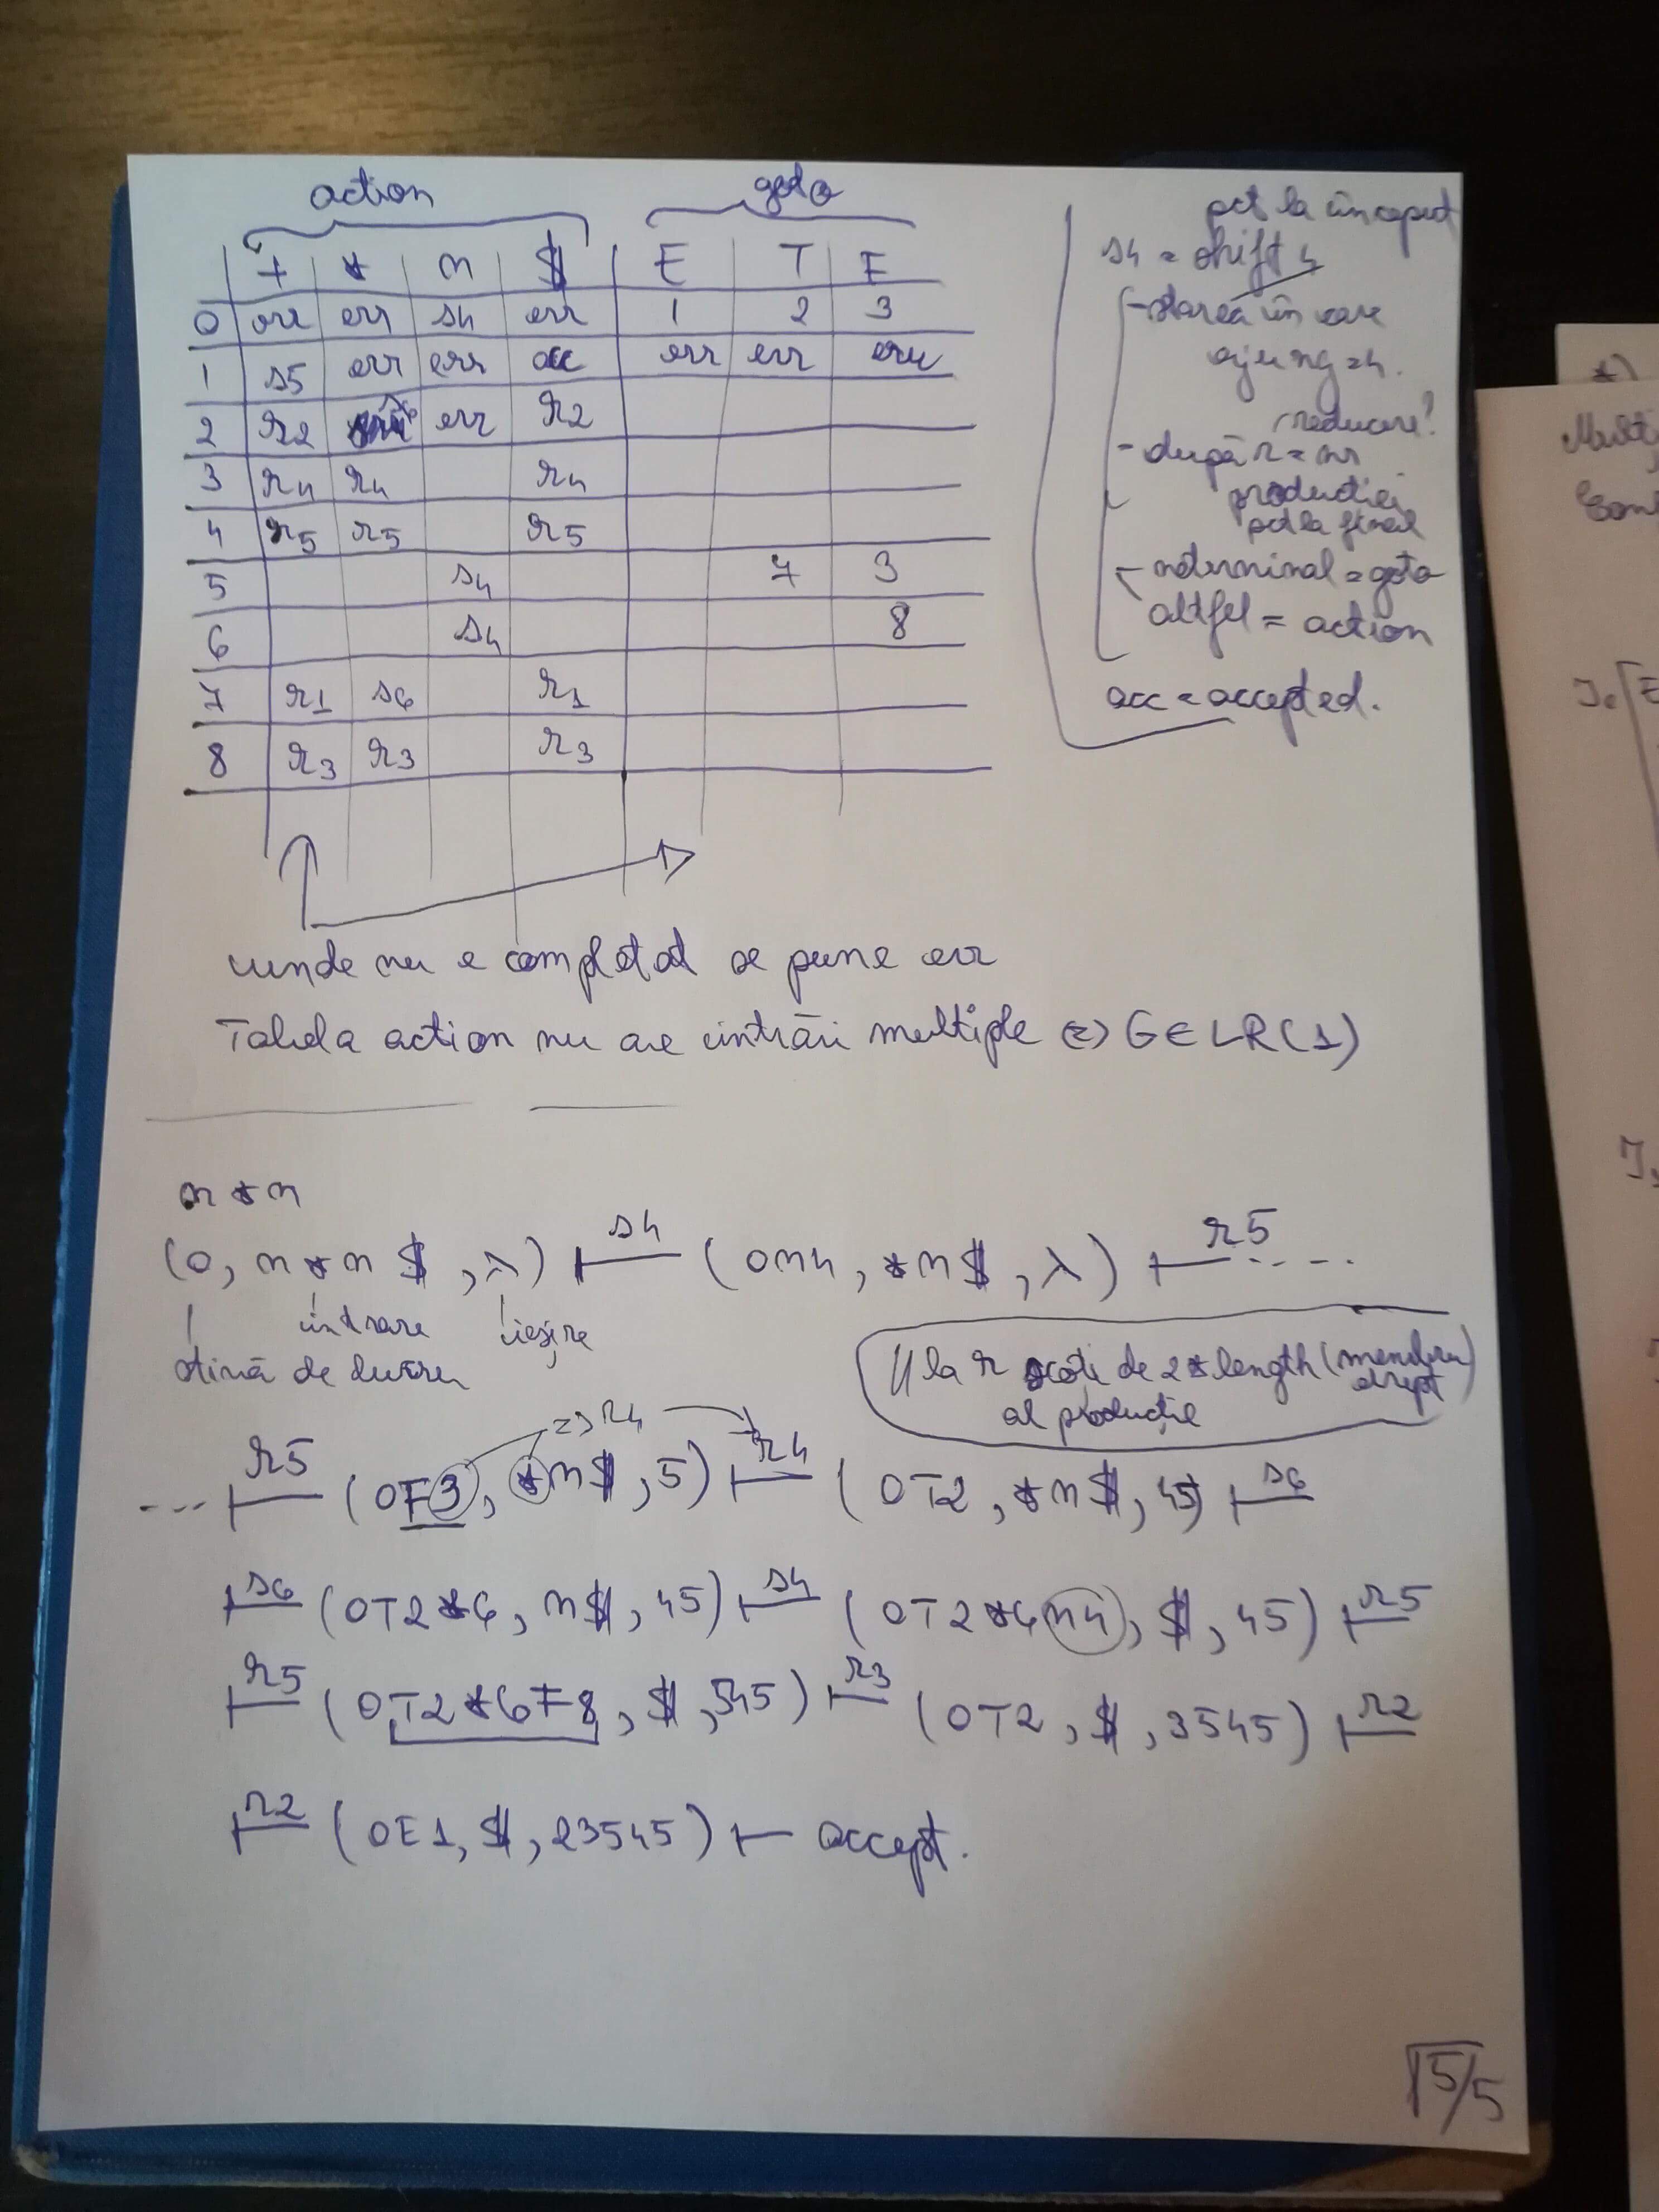 action goto
+ * n $ E T F
0 err err s4 err 1 2 3
1 s5 err err acc err err err
2 r2 err r2
3 r4 r4 r4
4 r5 r5 r5
5 s4 7 3
6 s4 8
7 r1 s6 r1
8 r3 r3 r3
pct la început
s4 = shift 4
- starea în care
ajung = 4.
reducere?
- după r = nr
producției
pct la final
- neterminal = goto
altfel = action
acc = accepted.
unde nu e completat se pune err
Tabela action nu are intrări multiple (=) G ∈ LR(1)
n * n
(0, n*n $, λ) ⊢ s4 (0n4, *n$, λ) ⊢ r5 ....
intrare ieșire
stivă de lucru
// la r scoți de 2*length (membru drept)
al producție
=> r4
... ⊢ r5 (0F3, *n$, 5) ⊢ r4 (0T2, *n$, 45) ⊢ s6
⊢ s6 (0T2*6, n$, 45) ⊢ s4 (0T2*6n4, $, 45) ⊢ r5
⊢ r5 (0T2*6F8, $, 545) ⊢ r3 (0T2, $, 3545) ⊢ r2
⊢ r2 (0E1, $, 23545) ⊢ accept.
5/5
*)
Mulți